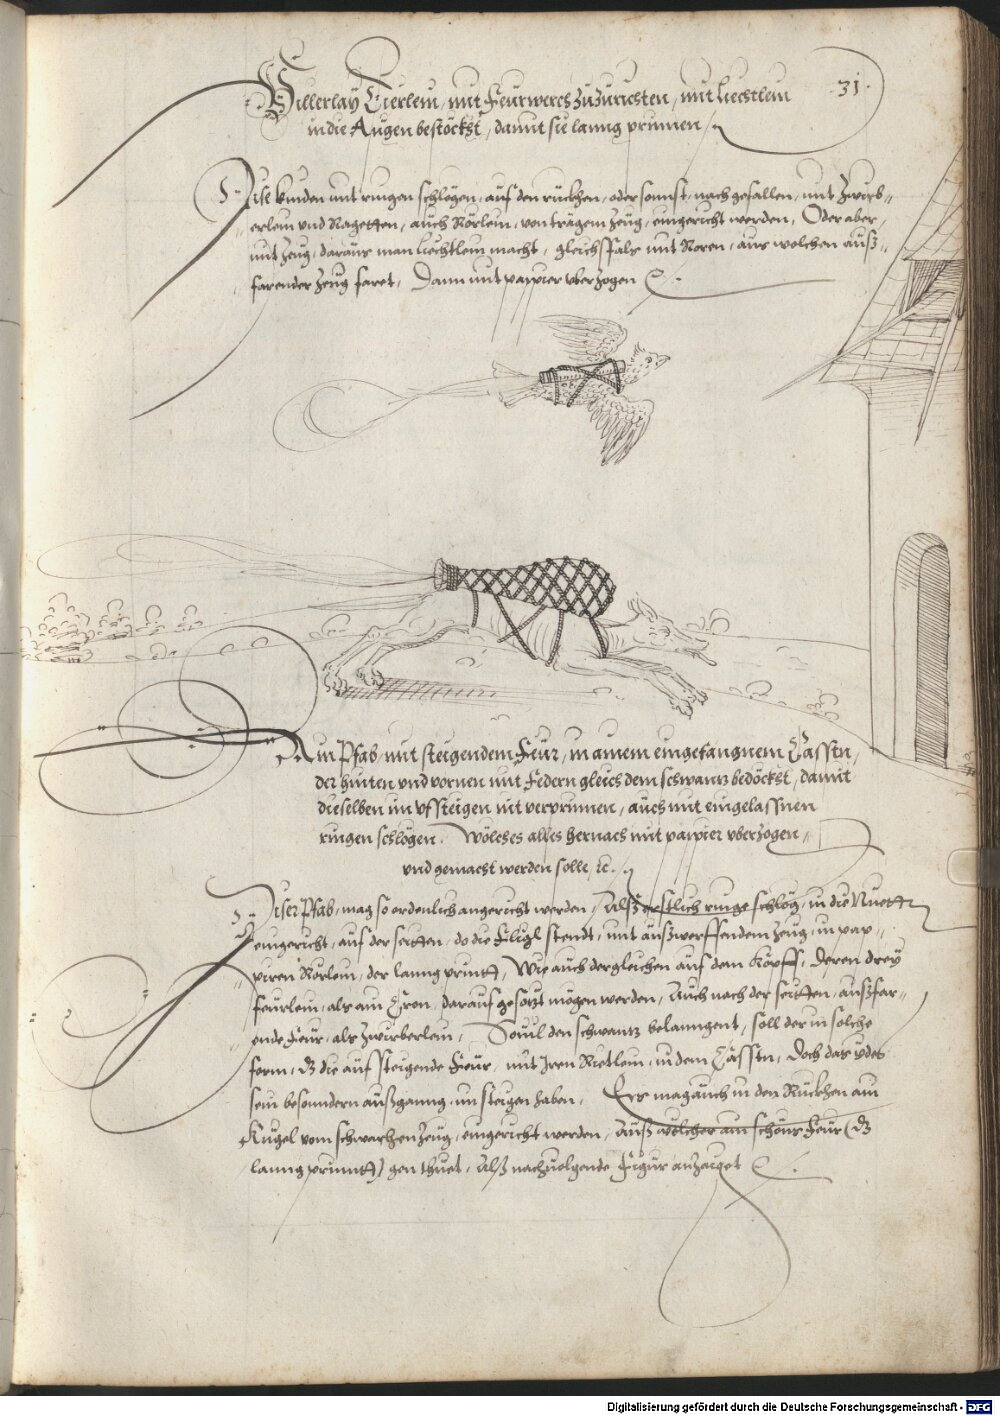 Allerlay Tierlein, mit Feurwerch zuzurichten, mit liechtlein
31.
in die Augen bestöckht, damit sie lanng prinnen,
Dise kinden mit ringen schlögen, auf den rückhen, oder sonnst, nach gefallen, mit Zwirb„
erlein und Ragetten, auch Rörlein, von trägem Zeug, eingericht werden, Oder aber,
mit Zeug, daraus man liechtlein macht, gleichsfals mit Roren, aus welchen auß„
farender Zeug faret, Dann mit pappier uberzogen
Ain Pfab, mit steigendem Feur, in ainem eingefangnem Casstn,
der hinten und vornen mit Federn gleich dem schwantz bedöckht, damit
dieselben im ufsteigen nit verprinnen, auch mit eingelassnen
ringen schlögen. Wölches alles hernach mit pappier uberzogen,
und gemacht werden solle, etc.
Diser Pfab, mag so ordenlich angericht werden, Alß erstlich ringe schlög, in die Nuett
eingericht, auf der seitten, do die Fligl stendt, mit außwerffendem Zeug, in pap„
piren Rörlein, der lanng print, Wie auch dergleichen auf dem Kopff, deren drey
feurlein, als ain Cron, darauf gesözt mögen werden, Auch nach der seitten, außfar„
ende Feur, als Zwirberlein, Souil den schwantz belanngent, soll der in solche
form, dz die aufsteigende Feur, mit Iren Rietlein, in dem Casstn, doch das ydes
sein besonndern außganng, im steigen haben, Ers mag auch in den Rückhen ain
Kugel vom schwachen Zeug, eingericht werden, Auß welcher ain schöns Feur (dz
lanng prinnt) gen thuet, Alß nachuolgende Figur anzaiget
Digitalisierung gefördert durch die Deutsche Forschungsgemeinschaft - DFG